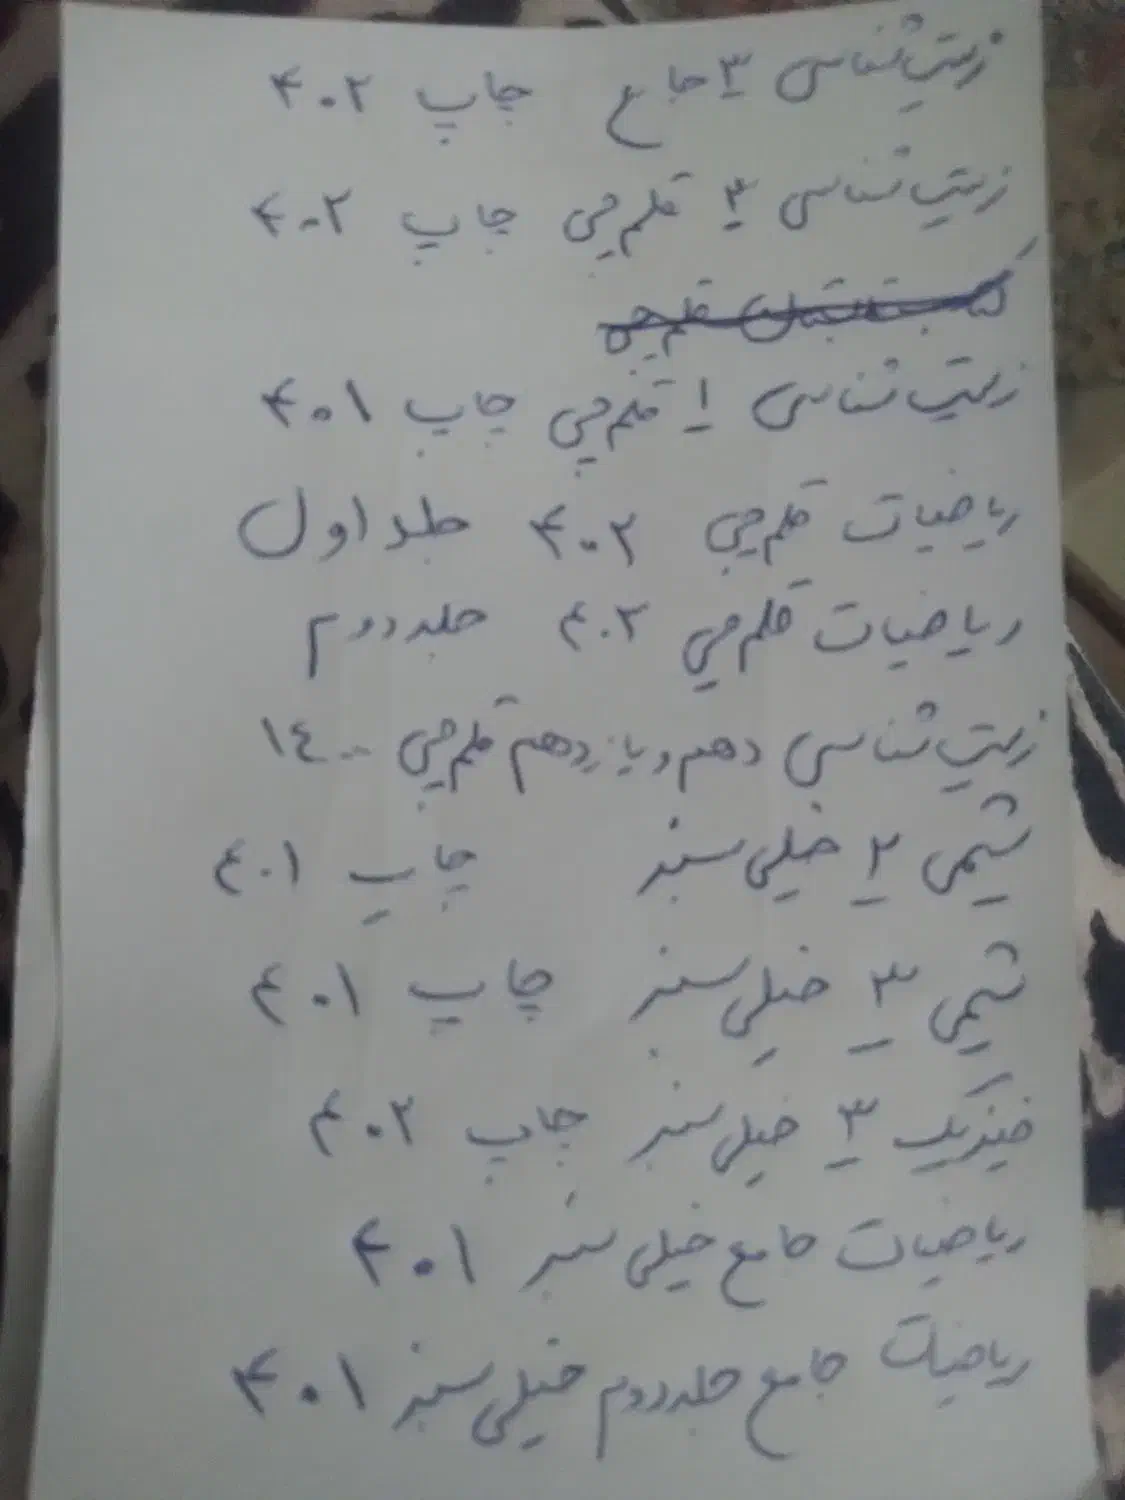 زیست شناسی ۳ جامع چاپ ۴۰۲
زیست شناسی ۳ قلم چی چاپ ۴۰۲
قلم چی
زیست شناسی ۱ قلم چی چاپ ۴۰۱
ریاضیات قلم چی ۴۰۲ جلد اول
ریاضیات قلم چی ۴۰۲ جلد دوم
زیست شناسی دهم و یازدهم قلم چی ۱۴۰۰
شیمی ۲ خیلی سبز چاپ ۴۰۱
شیمی ۳ خیلی سبز چاپ ۴۰۱
فیزیک ۳ خیلی سبز چاپ ۴۰۲
ریاضیات جامع خیلی سبز ۴۰۱
ریاضیات جامع جلد دوم خیلی سبز ۴۰۱